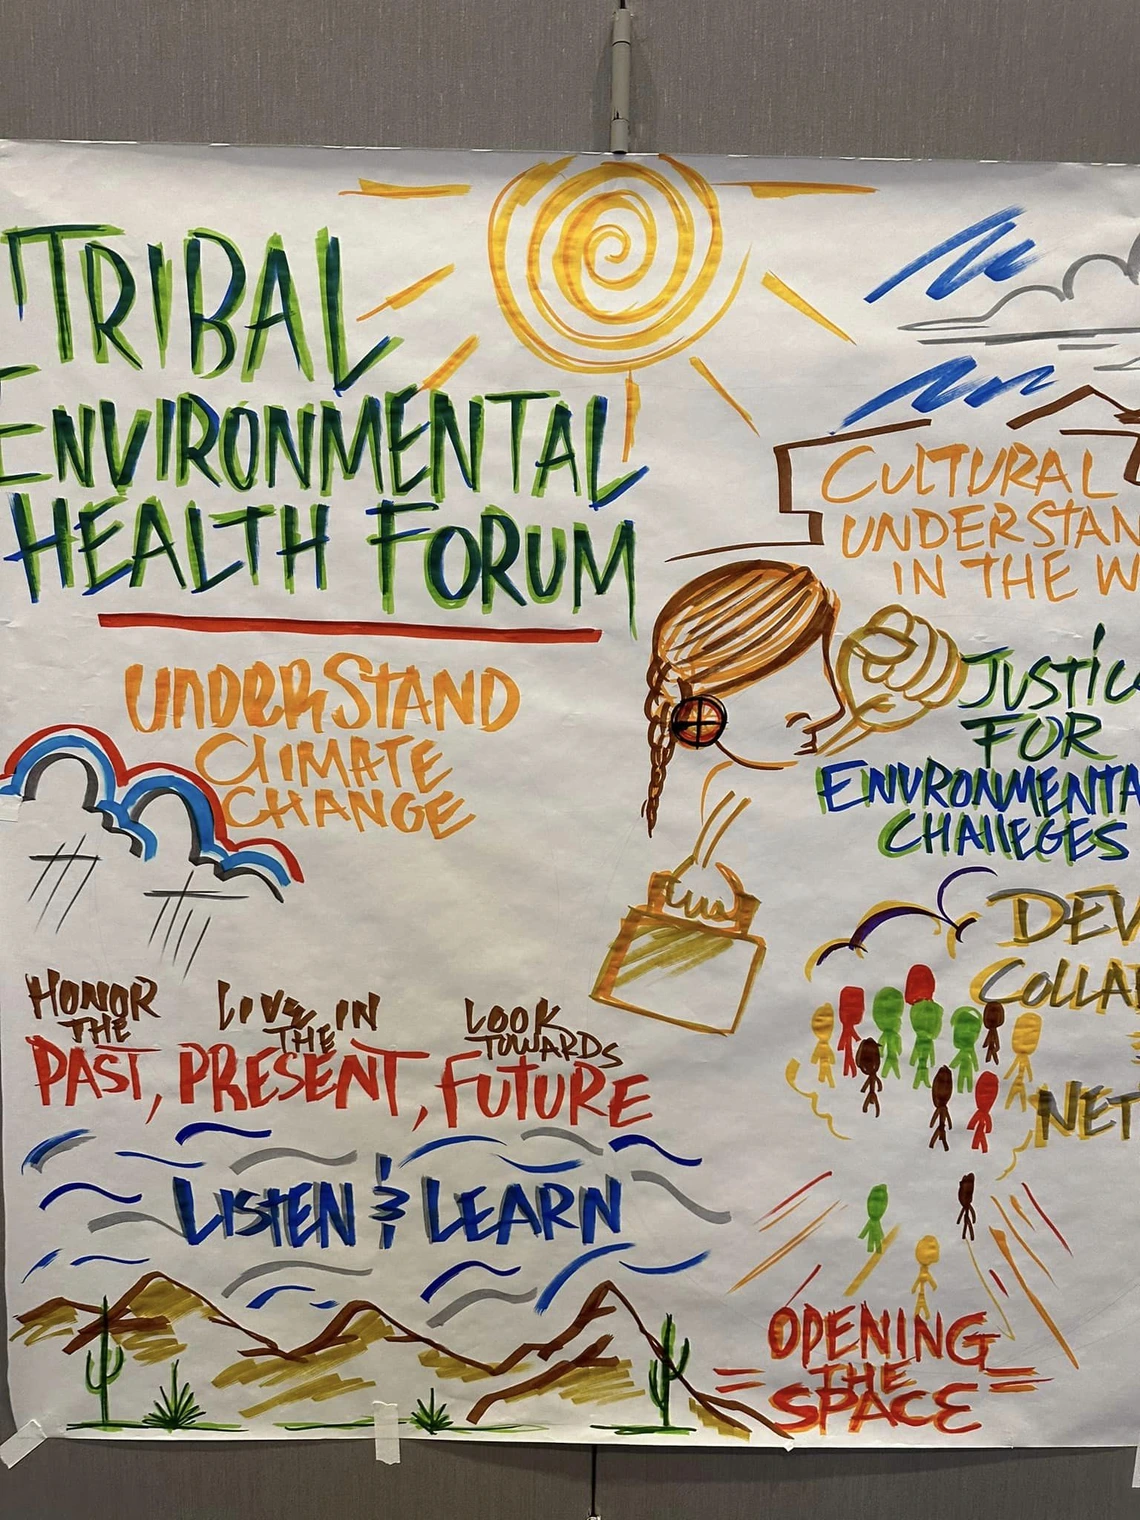 TRIBAL
ENVIRONMENTAL
HEALTH FORUM
UNDERSTAND
CLIMATE
CHANGE
CULTURAL
UNDERSTAN
IN THE W
JUSTIC
FOR
ENVIRONMENTA
CHALLEGES
DEV
COLLA
NET
HONOR
THE
PAST,
LIVE IN
THE
PRESENT,
LOOK
TOWARDS
FUTURE
LISTEN & LEARN
OPENING
THE
SPACE